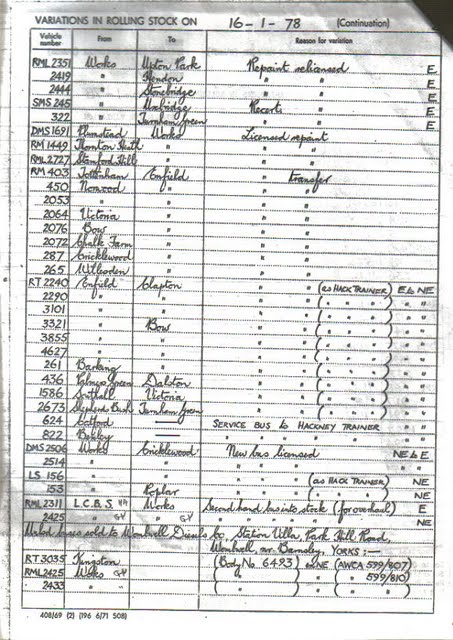 VARIATIONS IN ROLLING STOCK ON 16-1-78 (Continuation)
Vehicle number From To Reason for variation
RML 2351 Works Upton Park Repaint relicensed E
2419 " Hendon " " E
2444 " Stonebridge " " E
SMS 245 " Uxbridge Recert. " E
322 " Turnham Green " " E
DMS 1691 Plumstead Works Licensed repaint
RM 1449 Thornton Heath " " "
RML 2727 Stamford Hill " " "
RM 403 Tottenham Enfield " transfer
450 Norwood " " "
2053 " " " "
2064 Victoria " " "
2076 Bow " " "
2072 Chalk Farm " " "
287 Cricklewood " " "
265 Willesden " " "
RT 2240 Enfield Clapton " " (as HACK TRAINER) E to NE
2290 " " " " ( " " " ) " "
3101 " " " " ( " " " ) " "
3321 " Bow " " ( " " " ) " "
3855 " " " " ( " " " ) " "
4627 " " " " ( " " " ) " "
261 Barking " " " ( " " " ) " "
436 Palmers Green Dalston " " ( " " " ) " "
1586 Southall Victoria " " ( " " " ) " "
2673 Shepherd Bush Turnham Green " " ( " " " ) " "
624 Catford —— SERVICE BUS to HACKNEY TRAINER " "
822 Bexley —— " " " " " "
DMS 2506 Works Cricklewood New bus licensed NE to E
2514 " " " " " " "
LS 156 " " " " (as HACK TRAINER) NE
153 " Poplar " " ( " " " ) NE
RML 2311 L.C.B.S. Works Second hand bus into stock (for overhaul) E
2425 " " " " " " " NE
buses sold to Wombwell Diesels Co, Station Villa, Park Hill Road,
Wombwell, nr. Barnsley, YORKS :—
RT 3035 Kingston (Body No 6493) NE (AWCA 599/807)
RML 2425 Works ( " ) " 599/810)
2433 " ( " ) " "
408/69 (2) (196 6/71 508)